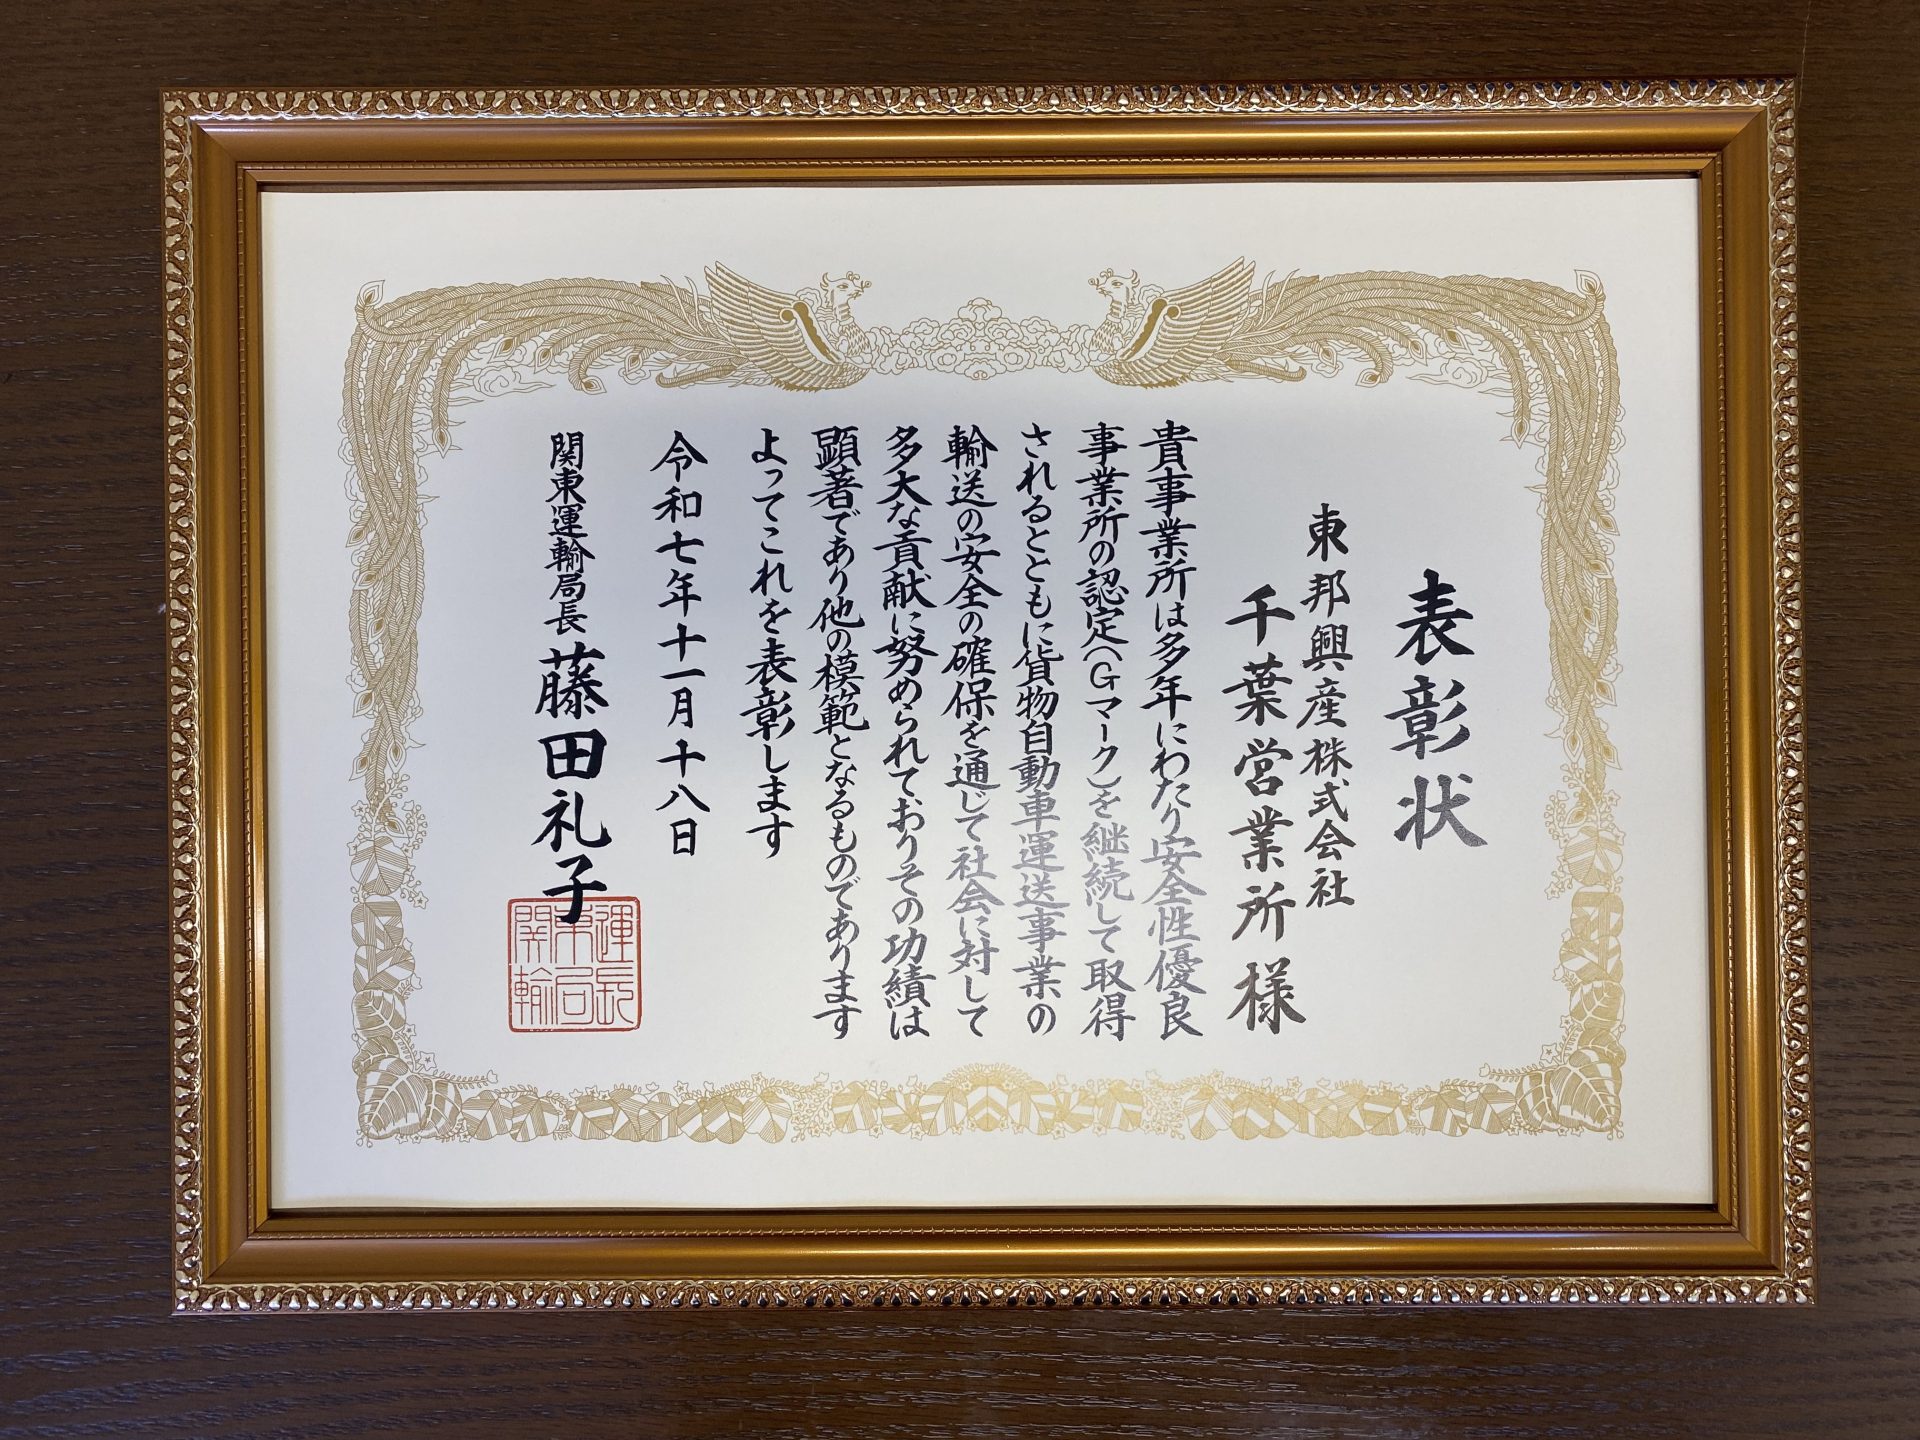 表彰状
東邦興産株式会社
千葉営業所様
貴事業所は多年にわたり安全性優良
事業所の認定(Gマーク)を継続して取得
されるとともに貨物自動車運送事業の
輸送の安全の確保を通じて社会に対して
多大な貢献に努められておりその功績は
顕著であり他の模範となるものであります
よってこれを表彰します
令和七年十一月十八日
関東運輸局長 藤田礼子